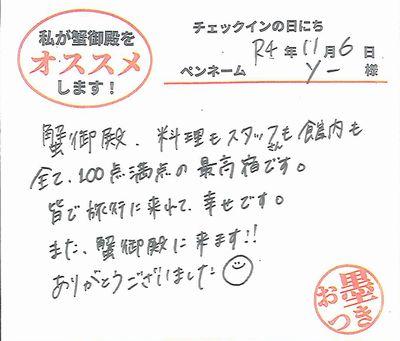 私が蟹御殿を
オススメ
します！
チェックインの日にち
R4年11月6日
ペンネーム Y- 様
蟹御殿、料理もスタッフさんも館内も
全て、100点満点の最高宿です。
皆で旅行に来れて、幸せです。
また、蟹御殿に来ます!!
ありがとうございました
お墨つき